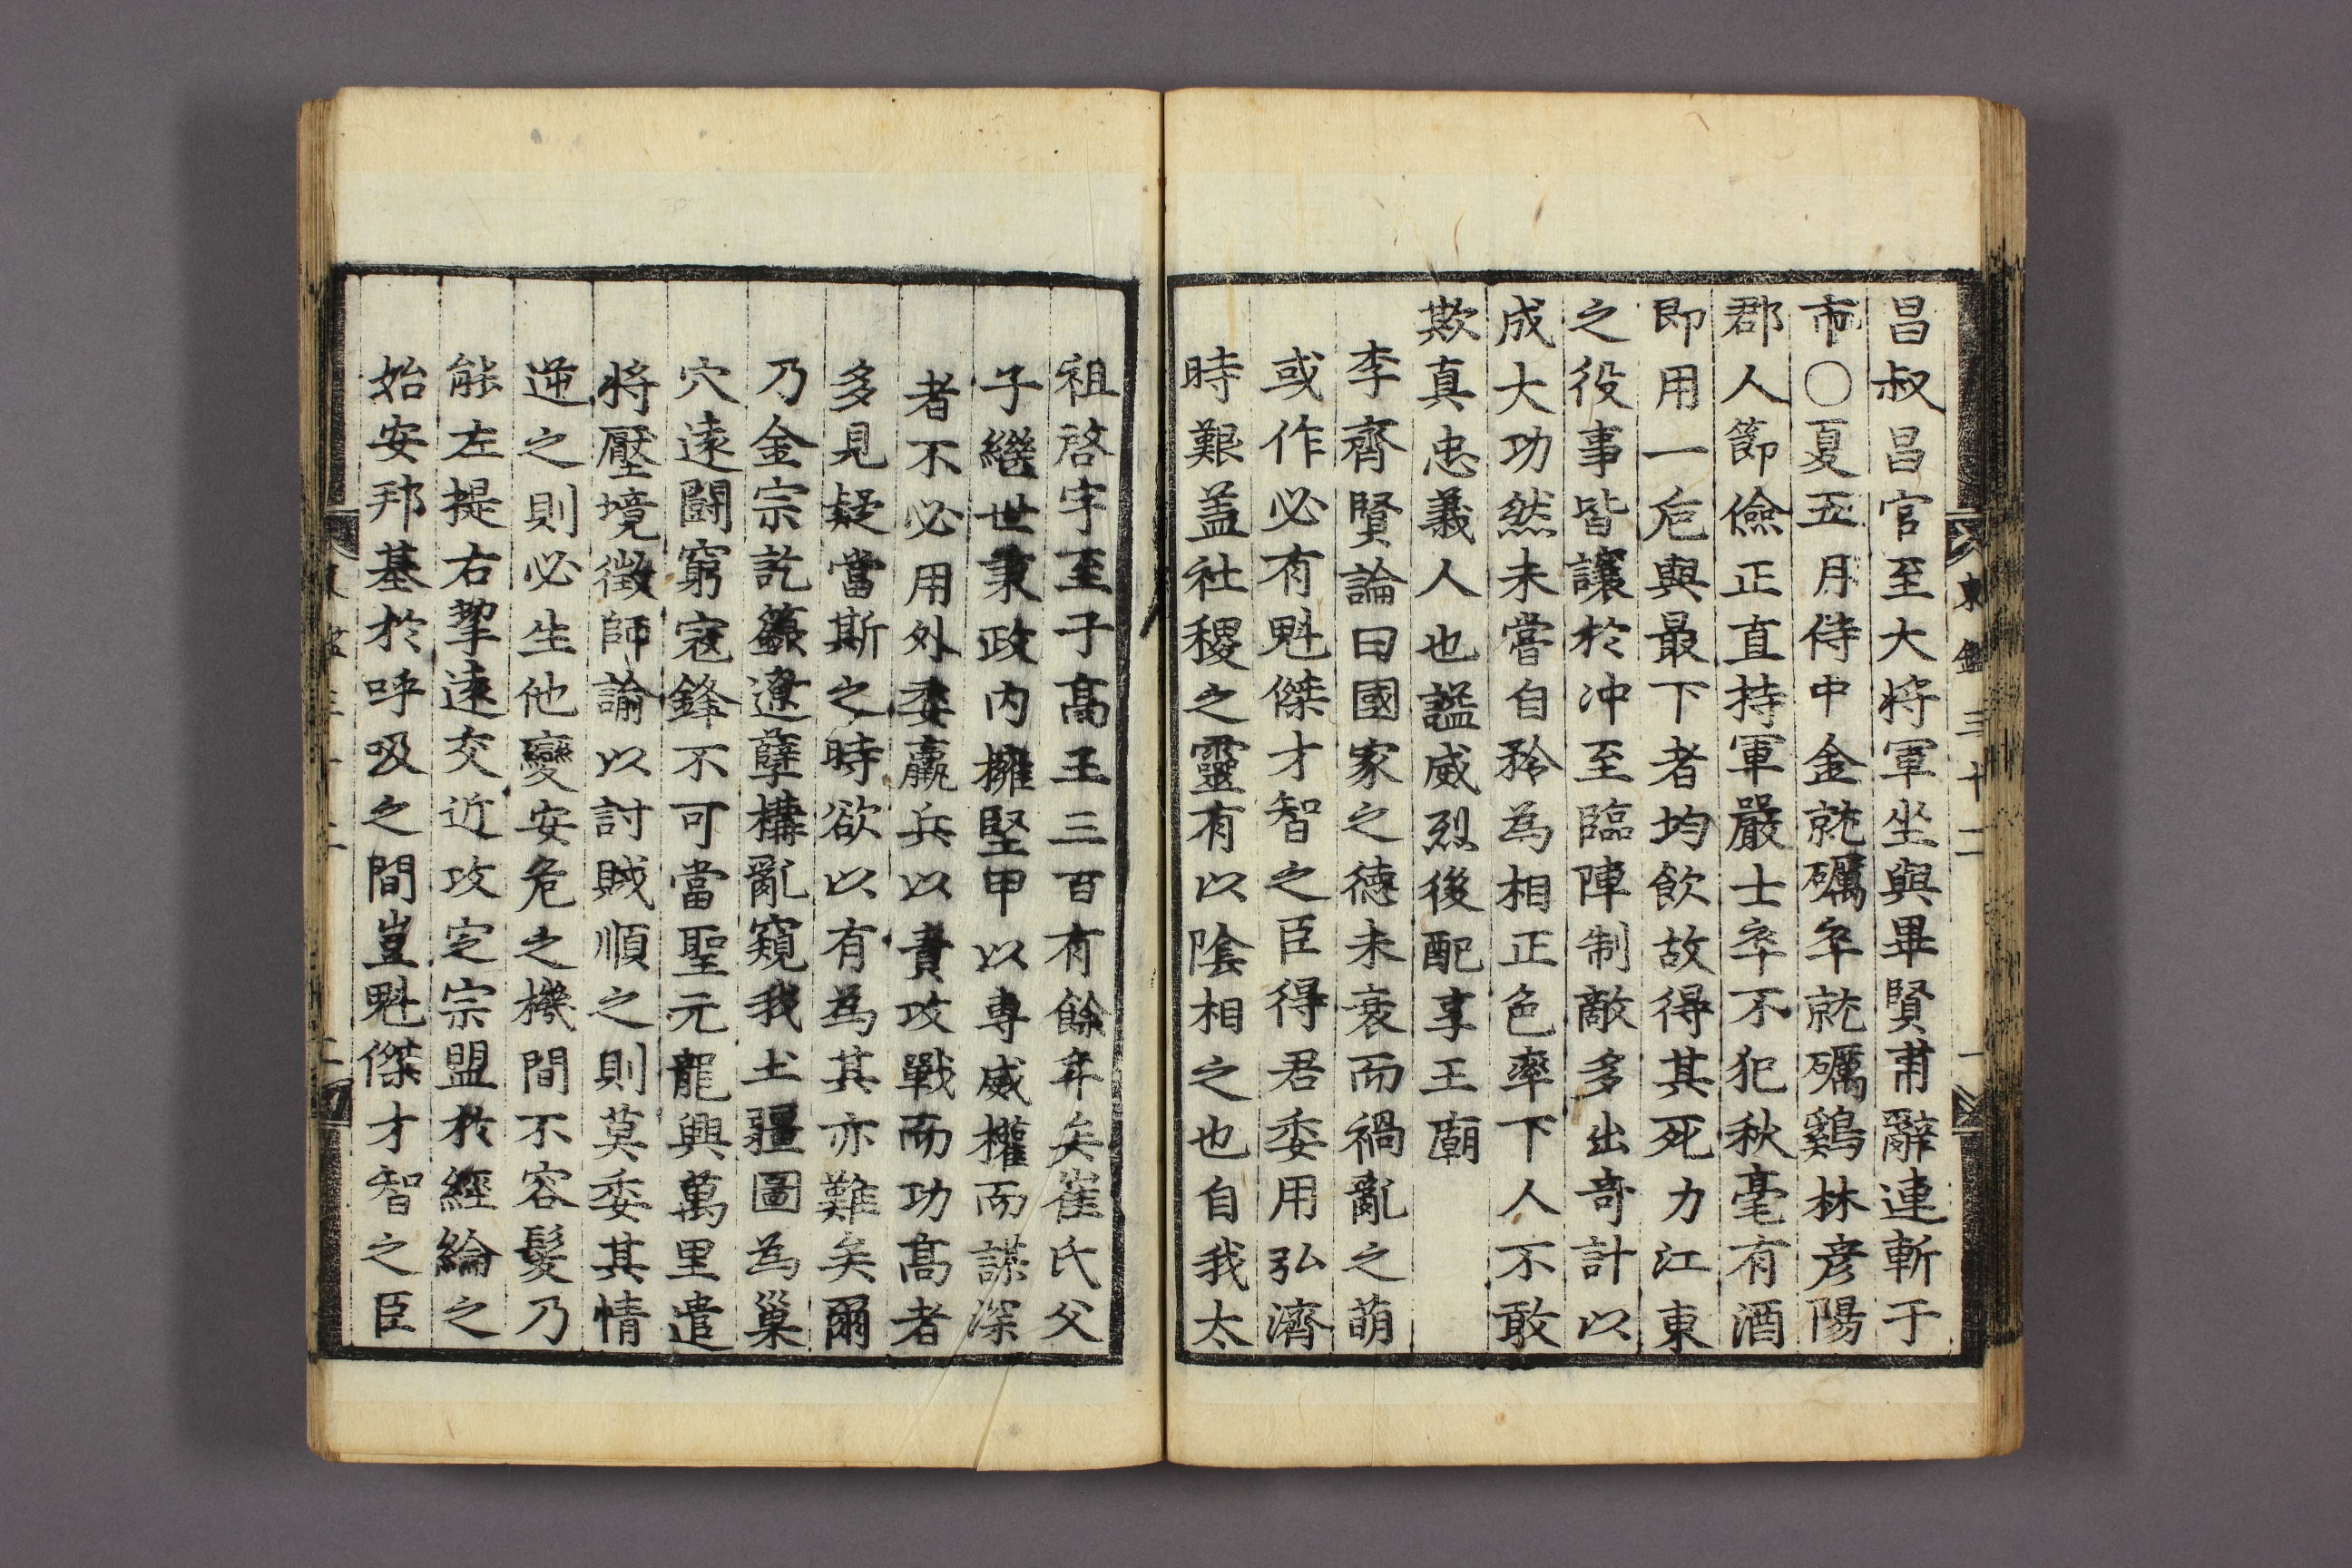 昌叔昌官至大將軍坐與畢賢甫辭連斬于
市○夏五月侍中金就礪卒就礪鷄林彦陽
郡人節儉正直持軍嚴士卒不犯秋毫有酒
即用一巵與最下者均飮故得其死力江東
之役事皆讓於冲至臨陣制敵多出奇計以
成大功然未嘗自矜為相正色率下人不敢
欺真忠義人也謚威烈後配享王廟
李齊賢論曰國家之德未衰而禍亂之萌
或作必有魁傑才智之臣得君委用弘濟
時艱盖社稷之靈有以隂相之也自我太
祖啓宇至子高王三百有餘年矣崔氏父
子繼世秉政内擁堅甲以專威權而謀深
者不必用外委羸兵以責攻戰而功髙者
多見疑當斯之時欲以有為其亦難矣爾
乃金宗訖籙遼孽構亂窺我土疆圖為巢
穴逺闘窮寇鋒不可當聖元龍興萬里遣
將壓境徵師諭以討賊順之則莫委其情
逆之則必生他變安危之機間不容髮乃
能左提右挈逺交近攻定宗盟於經綸之
始安邦基於呼吸之間豈魁傑才智之臣
東鑑三十二
一